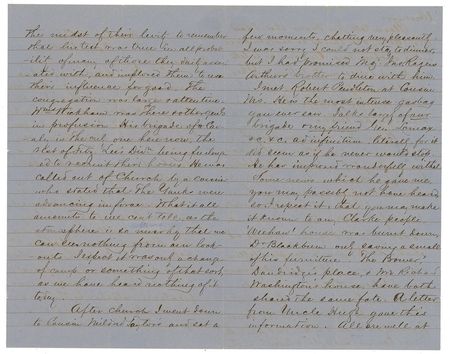 the midst of their levity to remember
that his text was true in all probabi-
lity of many of those they daily associ-
ated with, and implored them to use
their influence for good. The
congregation was large & attentive.
Wm Hapham was there & other gen's
in profusion. His brigade of artil-
is the only one here now, the
rest of Fitz Lee's Div. being
ed to recruit their horses. He was
called out of Church by a courier
who stated that the Yanks were
advancing in force. What it all
amounts to we cant tell, as the
atmosphere is so smoky that we
can see nothing from our look
outs. I expect it was only a change
of camp or something of that sort
as we have heard nothing of it
today.
After church I went down
to Cousin Mildred Taylors and sat a
few moments, chatting very pleasantly.
I was sorry I could not stay to dinner,
but I had promised Maj.
Arthurs brother to dine with him.
I met Robert Pendleton at Cousin
Ms. He is the most intense gasbag
you ever saw. Talks large of our
brigade & my friend Gen Lomax
&c. &c. ad infinitum. Literally, for it
did seem as if he never would stop.
He has improved wonderfully withal
Some news which he gave me
you may possibly not have heard
so I repeat it, that you may make
it known to any Clarke people.
"Mechaw" house was burnt down,
Dr Blackburn only saving a small
of his furniture. "The Bower,"
Dandridge's place, & Mr Richard
Washingtons house, have both
shared the same fate. A letter
from Uncle Hugh gave this
information. All are well at